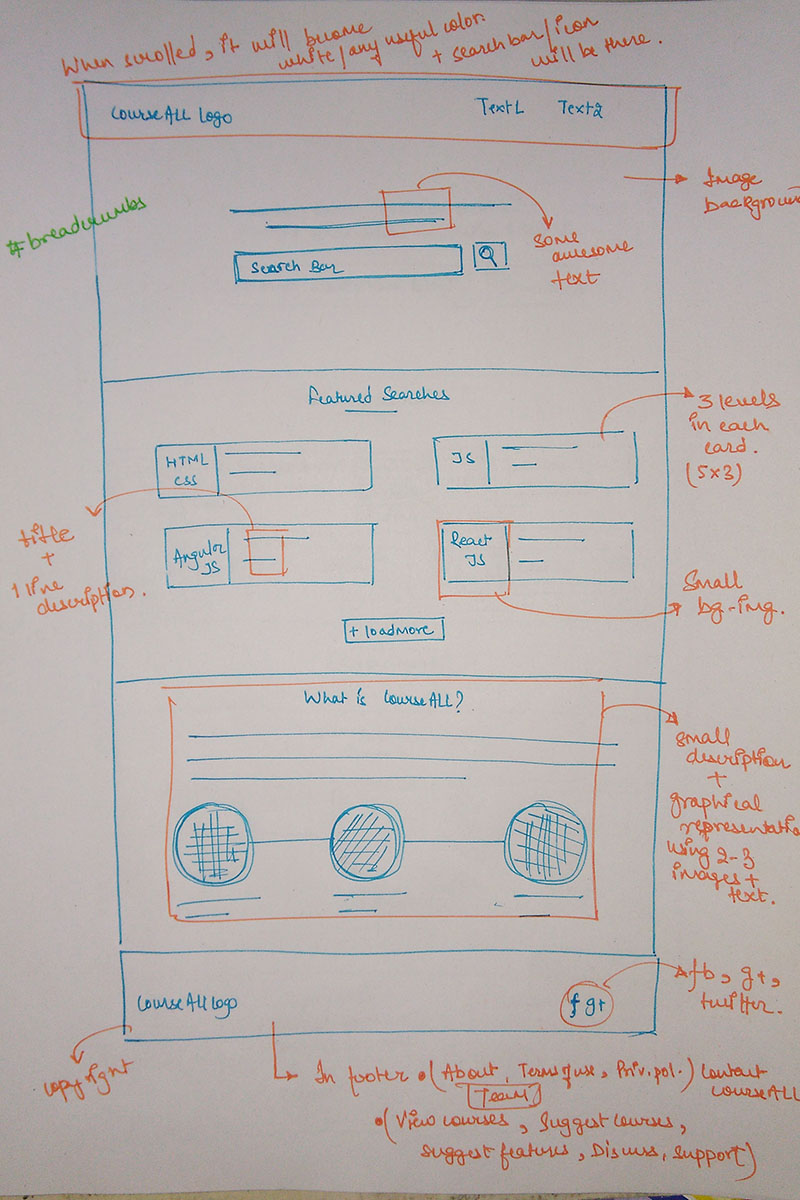 When scrolled, it will become
white/any useful color.
+ search bar/icon
will be there.
CourseALL Logo
Text1
Text2
Image
background
#breadcrumbs
some
awesome
text
Search Bar
Featured Searches
3 levels
in each
card.
(5x3)
HTML
CSS
JS
title
+
1 line
description.
Angular
JS
React
JS
Small
bg-img.
+ loadmore
What is CourseALL?
small
description
+
graphical
representation
using 2-3
images +
text.
CourseAll Logo
f g+
fb, g+,
twitter.
copyright
In footer • (About, Terms of use, Priv. pol.) Contact
CourseALL
Team
• (View courses, Suggest courses,
suggest features, Discuss, support)